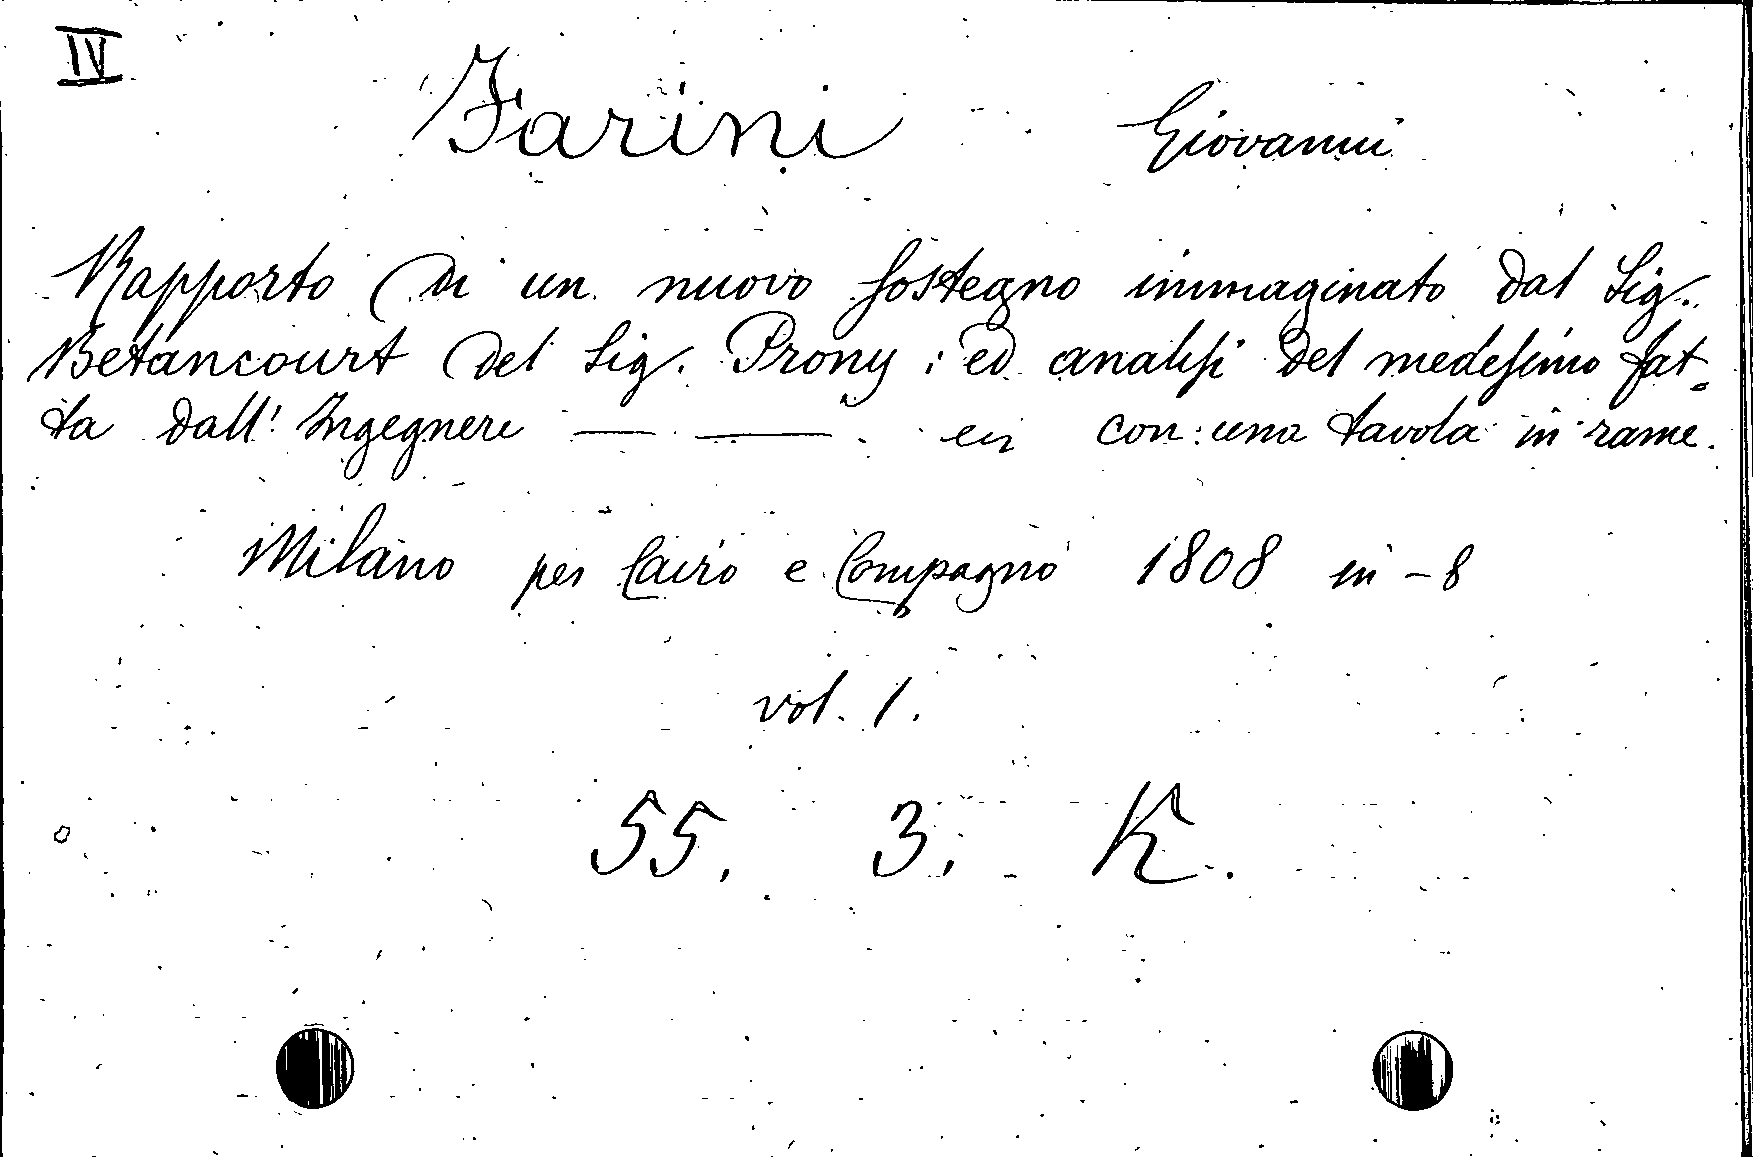 IV
Farini Giovanni
Rapporto di un nuovo sostegno immaginato dal Sig.
Betancourt del Sig. Prony; ed analisi del medesimo fat-
ta dall' Ingegnere — — con una tavola in rame.
Milano per Cairo e Compagno 1808 in-8
vol. 1.
55. 3. K.